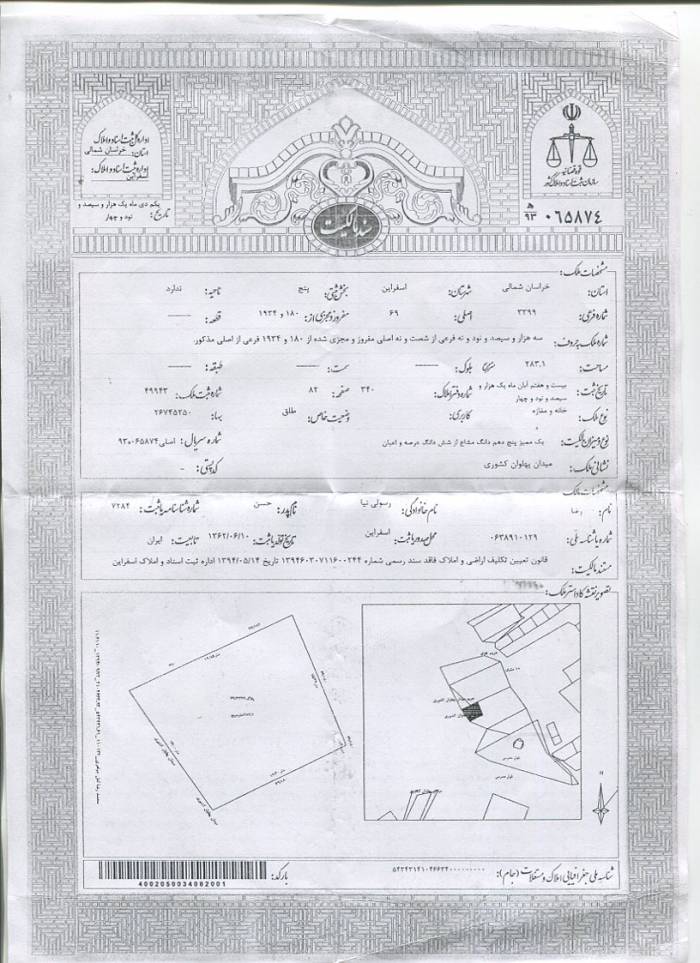 قوه قضائیه
سازمان ثبت اسناد و املاک کشور
اداره کل ثبت اسناد و املاک
استان: خراسان شمالی
اداره ثبت اسناد و املاک:
اسفراین
تاریخ: یکم دی ماه یک هزار و سیصد و نود و چهار
سند مالکیت
۰۶۵۸۷۴ ۹۳
مشخصات ملک:
استان: خراسان شمالی شهرستان: اسفراین بخش ثبتی: پنج ناحیه: ندارد
شماره فرعی: ۳۳۹۹ اصلی: ۶۹ مفروز و مجزی از: ۱۸۰ و ۱۹۳۴ قطعه: ------
شماره ملک بحروف: سه هزار و سیصد و نود و نه فرعی از شصت و نه اصلی مفروز و مجزی شده از ۱۸۰ و ۱۹۳۴ فرعی از اصلی مذکور.
مساحت: ۲۸۳.۱ مترمربع بلوک: ------ سمت: ------ طبقه: ------
تاریخ ثبت: بیست و هفتم آبان ماه یک هزار و سیصد و نود و چهار شماره دفتر املاک: ۳۴۰ صفحه: ۸۲ شماره ثبت ملک: ۴۹۹۴۳
نوع ملک: خانه و مغازه کاربری: وضعیت خاص: طلق بهاء: ۲۶۷۴۵۲۵۰
نوع و میزان مالکیت: یک ممیز پنج دهم دانگ مشاع از شش دانگ عرصه و اعیان شماره سریال: اصلی ۹۳۰۰۶۵۸۷۴
نشانی ملک: میدان پهلوان کشوری کدپستی: -
مشخصات مالک
نام: رضا نام خانوادگی: رسولی نیا نام پدر: حسن شماره شناسنامه یا ثبت: ۷۲۸۴
شماره یا شناسه ملی: ۰۶۳۸۹۱۰۱۲۹ محل صدور یا ثبت: اسفراین تاریخ تولد یا ثبت: ۱۳۶۲/۰۶/۱۰ تابعیت: ایران
مستند مالکیت: قانون تعیین تکلیف اراضی و املاک فاقد سند رسمی شماره ۱۳۹۴۶۰۳۰۷۱۱۶۰۰۲۴۴ تاریخ ۱۳۹۴/۰۵/۱۴ اداره ثبت اسناد و املاک اسفراین
تصویر نقشه کاداستر ملک:
شناسه ملی جغرافیایی املاک و مستغلات (جام):
بارکد:
4002050034082001